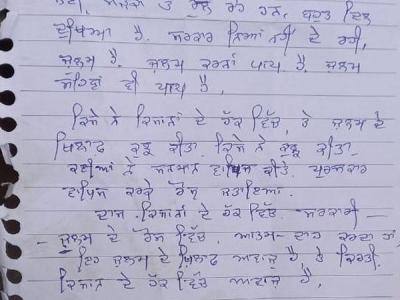 ਤੇ ਰੁਲ ਰਹੇ ਹਨ. ਬਹੁਤ ਦਿਲ
ਦੁਖਿਆ ਹੈ. ਸਰਕਾਰ ਨਿਆਂ ਨਹੀਂ ਦੇ ਰਹੀ.
ਜੁਲਮ ਹੈ. ਜੁਲਮ ਕਰਨਾਂ ਪਾਪ ਹੈ. ਜੁਲਮ
ਸਹਿਣਾਂ ਵੀ ਪਾਪ ਹੈ.
ਕਿਸੇ ਨੇ ਕਿਸਾਨਾਂ ਦੇ ਹੱਕ ਵਿੱਚ, ਤੇ ਜੁਲਮ ਦੇ
ਖਿਲਾਫ ਕੁਝ ਕੀਤਾ. ਕਿਸੇ ਨੇ ਕੁਝ ਕੀਤਾ.
ਕਈਆਂ ਨੇ ਸਨਮਾਨ ਵਾਪਿਸ ਕੀਤੇ. ਪੁਰਸਕਾਰ
ਵਾਪਿਸ ਕਰਕੇ ਰੋਸ ਜਤਾਇਆ.
ਦਾਸ ਕਿਸਾਨਾਂ ਦੇ ਹੱਕ ਵਿੱਚ. ਸਰਕਾਰੀ -
- ਜੁਲਮ ਦੇ ਰੋਸ ਵਿੱਚ. ਆਤਮ-ਦਾਹ ਕਰਦਾ ਹਾਂ
ਇਹ ਜੁਲਮ ਦੇ ਖਿਲਾਫ ਅਵਾਜ਼ ਹੈ, ਤੇ ਕਿਰਤੀ
ਕਿਸਾਨ ਦੇ ਹੱਕ ਵਿੱਚ ਆਵਾਜ ਹੈ.